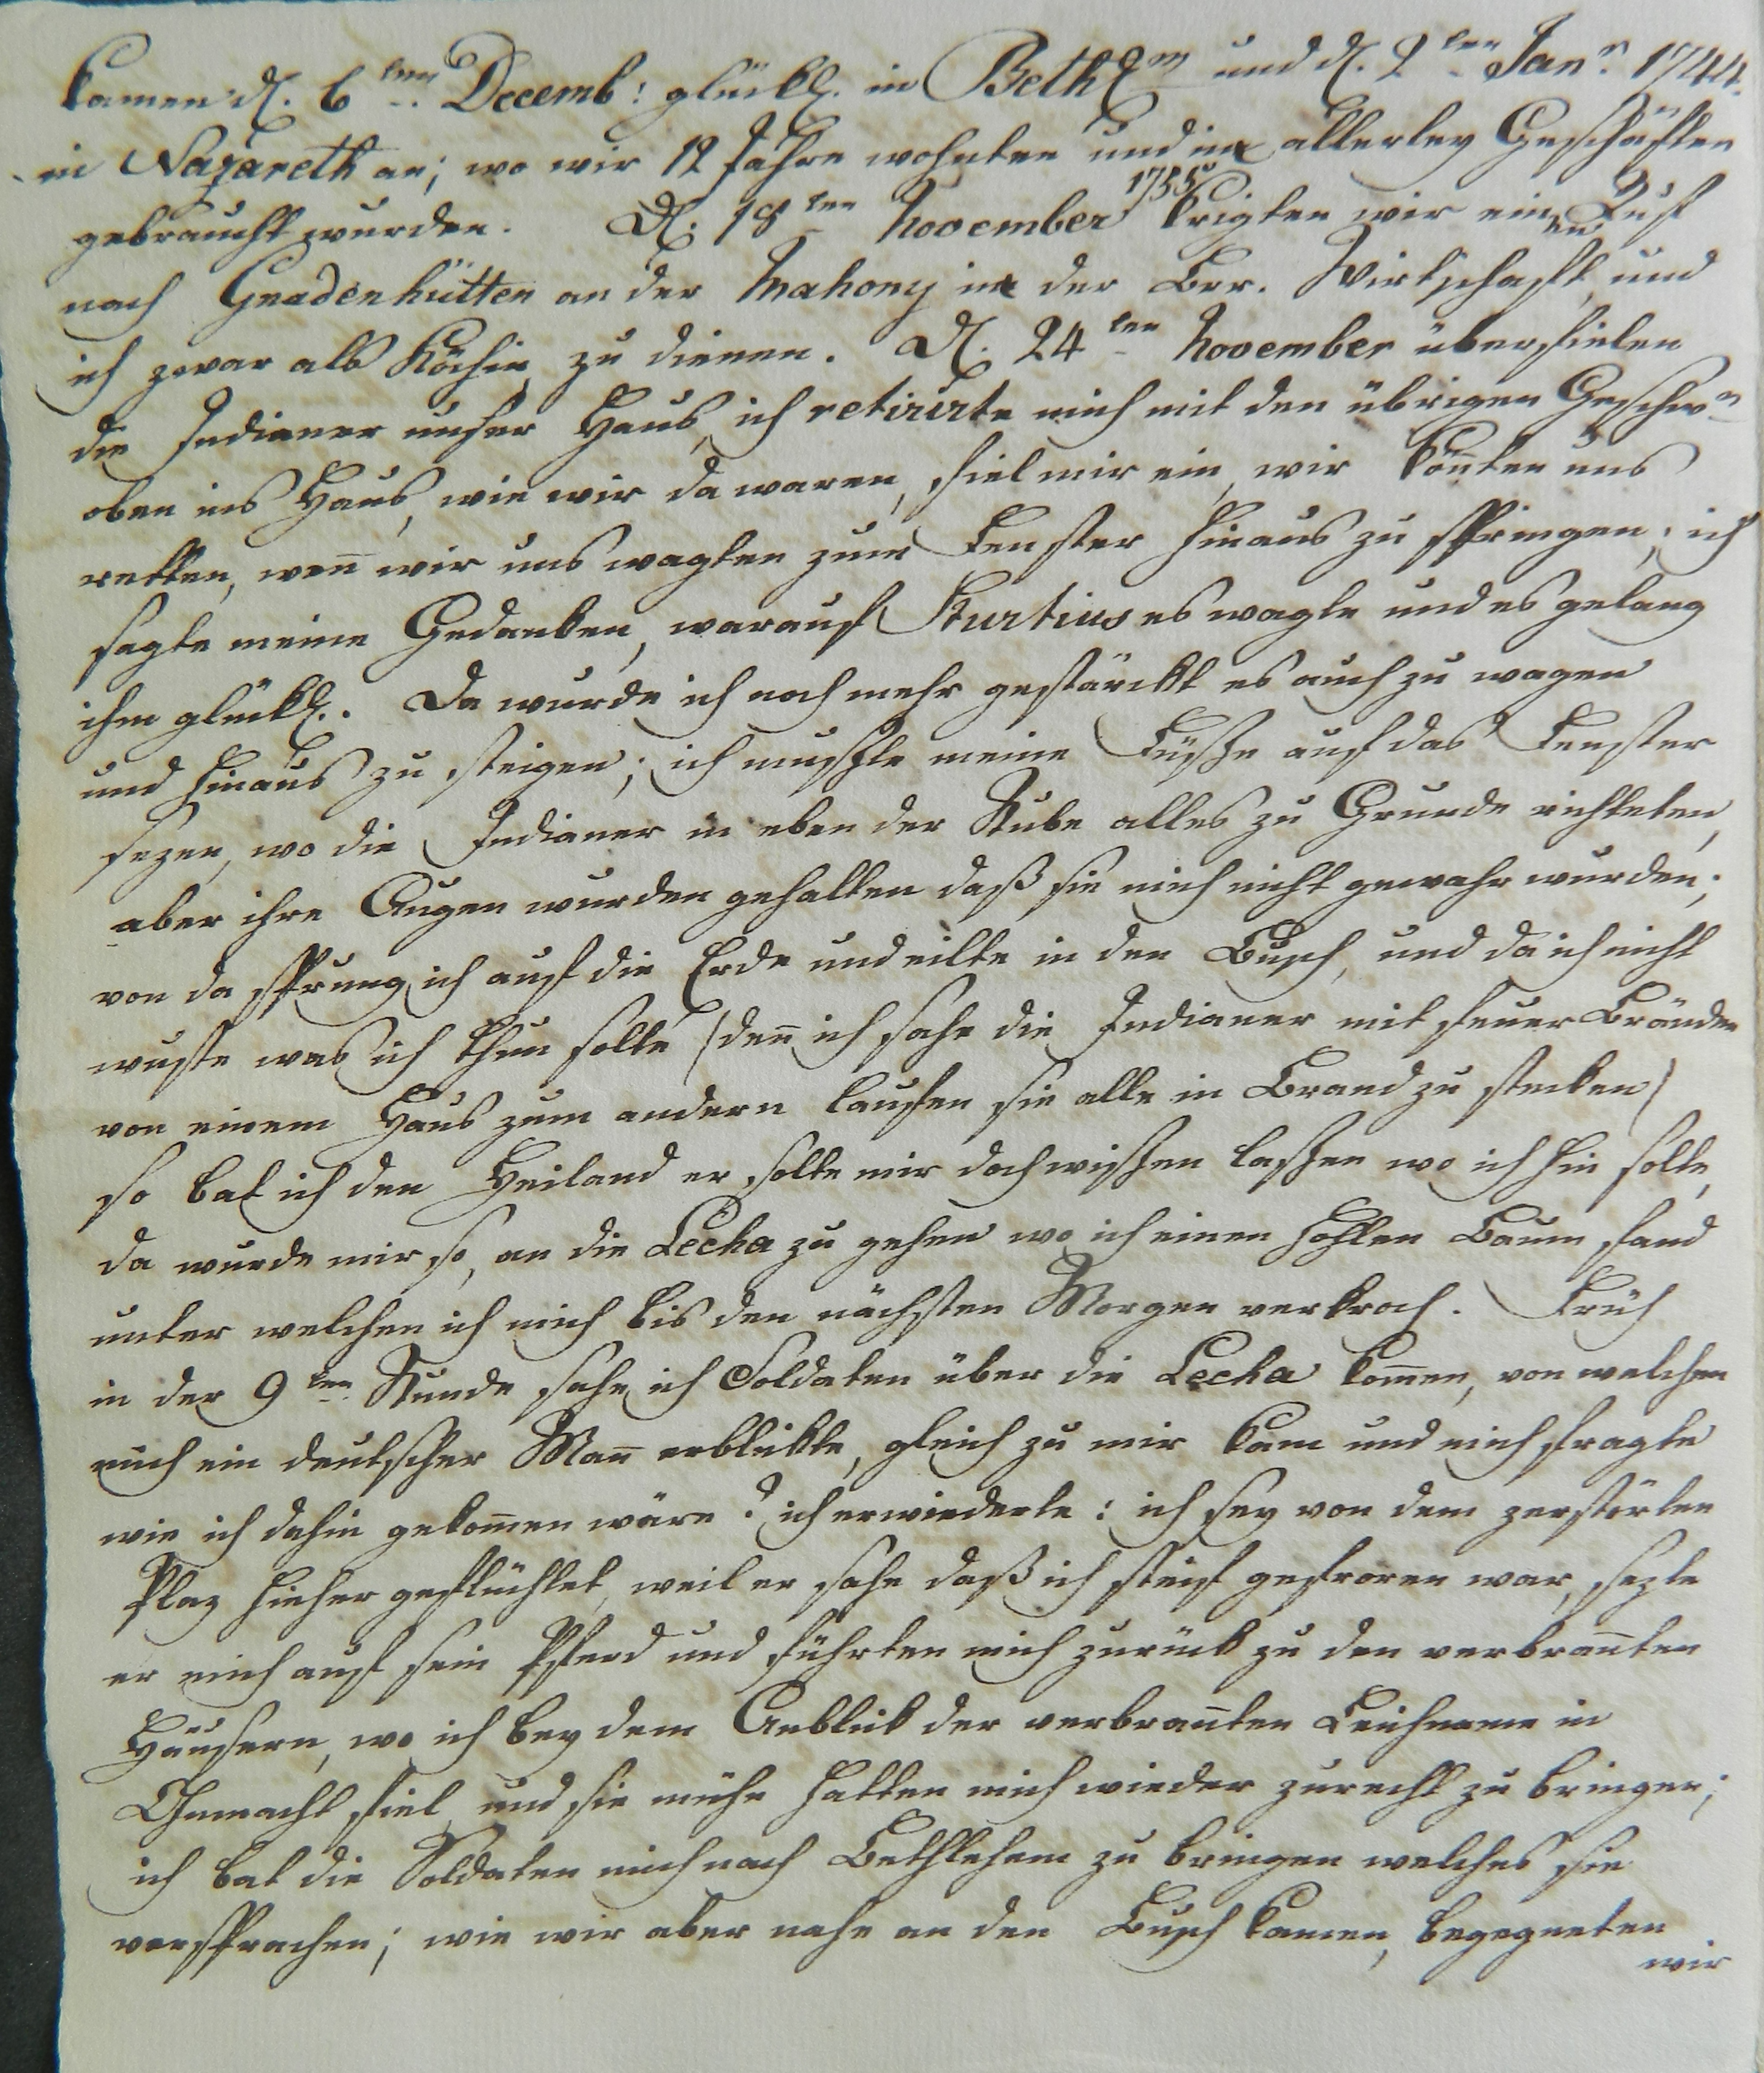 kamen d. 6ten Decemb: glückl. in Bethlm und d. 2ten Janr. 1744.
in Nazareth an; wo wir 12 Jahre wohnten und in allerley Geschäften
gebraucht wurden. D. 18ten November 1755 krigten wir einen Ruf
nach Gnadenhütten an der Mahony in der Brr. Wirtschaft, und
ich zwar als Köchin zu dienen. D. 24ten November überfielen
die Indianer unser Haus, ich retirirte mich mit den übrigen Geschwr.
oben ins Haus, wie wir da waren, fiel mir ein, wir kön̄ten uns
retten, wen̄ wir uns wagten zum Fenster hinaus zu springen; ich
sagte meine Gedanken, warauf Sturtius es wagte und es gelang
ihm glückl. Da wurde ich noch mehr gestärckt es auch zu wagen
und hinaus zu steigen; ich mußte meine Füße auf das Fenster
sezen, wo die Indianer in eben der Stube alles zu Grunde richteten,
aber ihre Augen wurden gehalten daß sie mich nicht gewahr wurden;
von da sprung ich auf die Erde und eilte in den Busch, und da ich nicht
wuste was ich thun solte (den̄ ich sahe die Indianer mit feuer Bränden
von einem Haus zum andern laufen sie alle in Brand zu stecken)
so bat ich den Heiland er solte mir doch wißen laßen wo ich hin solte,
da wurde mir so, an die Lecha zu gehen wo ich einen hohlen Baum fand
unter welchen ich mich bis den nächsten Morgen verkroch. Früh
in der 9ten Stunde sahe ich Soldaten über die Lecha kom̄en, von welchen
mich ein deutscher Man̄ erblickte, gleich zu mir kam und mich fragte
wie ich dahin gekom̄en wäre? ich erwiederte: ich sey von dem zerstörten
Plaz hieher geflüchtet, weil er sahe daß ich steif gefroren war, sezte
er mich auf sein Pferd und führten mich zurück zu den verbran̄ten
Häusern, wo ich bey dem Anblick der verbran̄ten Leichname in
Ohnmacht fiel, und sie mühe hatten mich wieder zurecht zu bringen;
ich bat die Soldaten mich nach Bethlehem zu bringen welches sie
versprachen; wie wir aber nahe an den Busch kamen, begegneten
wir